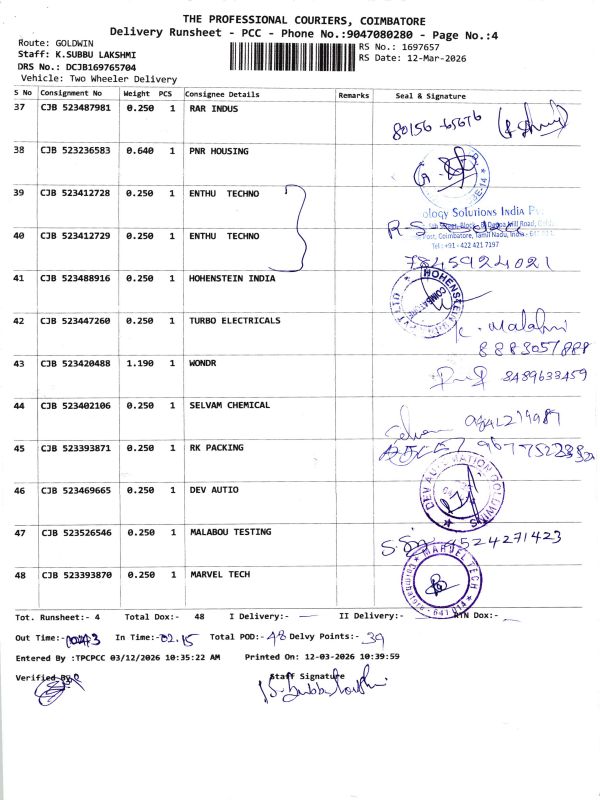 THE PROFESSIONAL COURIERS, COIMBATORE
Delivery Runsheet - PCC - Phone No.:9047080280 - Page No.:4
Route: GOLDWIN
Staff: K.SUBBU LAKSHMI
DRS No.: DCJB169765704
Vehicle: Two Wheeler Delivery
RS No.: 1697657
RS Date: 12-Mar-2026
S No Consignment No Weight PCS Consignee Details Remarks Seal & Signature
37 CJB 523487981 0.250 1 RAR INDUS
80156 65676
38 CJB 523236583 0.640 1 PNR HOUSING
39 CJB 523412728 0.250 1 ENTHU TECHNO
ology Solutions India
Mill Road,
Post, Coimbatore, Tamil Nadu, India -
Tel : +91 - 422 421 7197
40 CJB 523412729 0.250 1 ENTHU TECHNO
7845924021
41 CJB 523488916 0.250 1 HOHENSTEIN INDIA
HOHENSTEIN
PVT LTD
COIMBATORE
42 CJB 523447260 0.250 1 TURBO ELECTRICALS
K. Malathi
8883057888
43 CJB 523420488 1.190 1 WONDR
8489633459
44 CJB 523402106 0.250 1 SELVAM CHEMICAL
Selvam
45 CJB 523393871 0.250 1 RK PACKING
46 CJB 523469665 0.250 1 DEV AUTIO
DEV AUTOMATION GOLDWINS
47 CJB 523526546 0.250 1 MALABOU TESTING
9524271423
48 CJB 523393870 0.250 1 MARVEL TECH
MARVEL TECH
641 014
Tot. Runsheet:- 4 Total Dox:- 48 I Delivery:- II Delivery:- RTN Dox:-
Out Time:- In Time:-02.15 Total POD:-48 Delvy Points:-39
Entered By :TPCPCC 03/12/2026 10:35:22 AM Printed On: 12-03-2026 10:39:59
Verified By Staff Signature